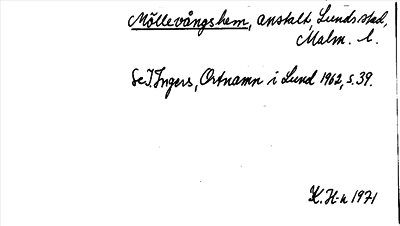 Möllevångshem, anstalt, Lunds stad,
Malm. l.
Se I. Ingers, Ortnamn i Lund 1962, s. 39.
K. H-n 1971